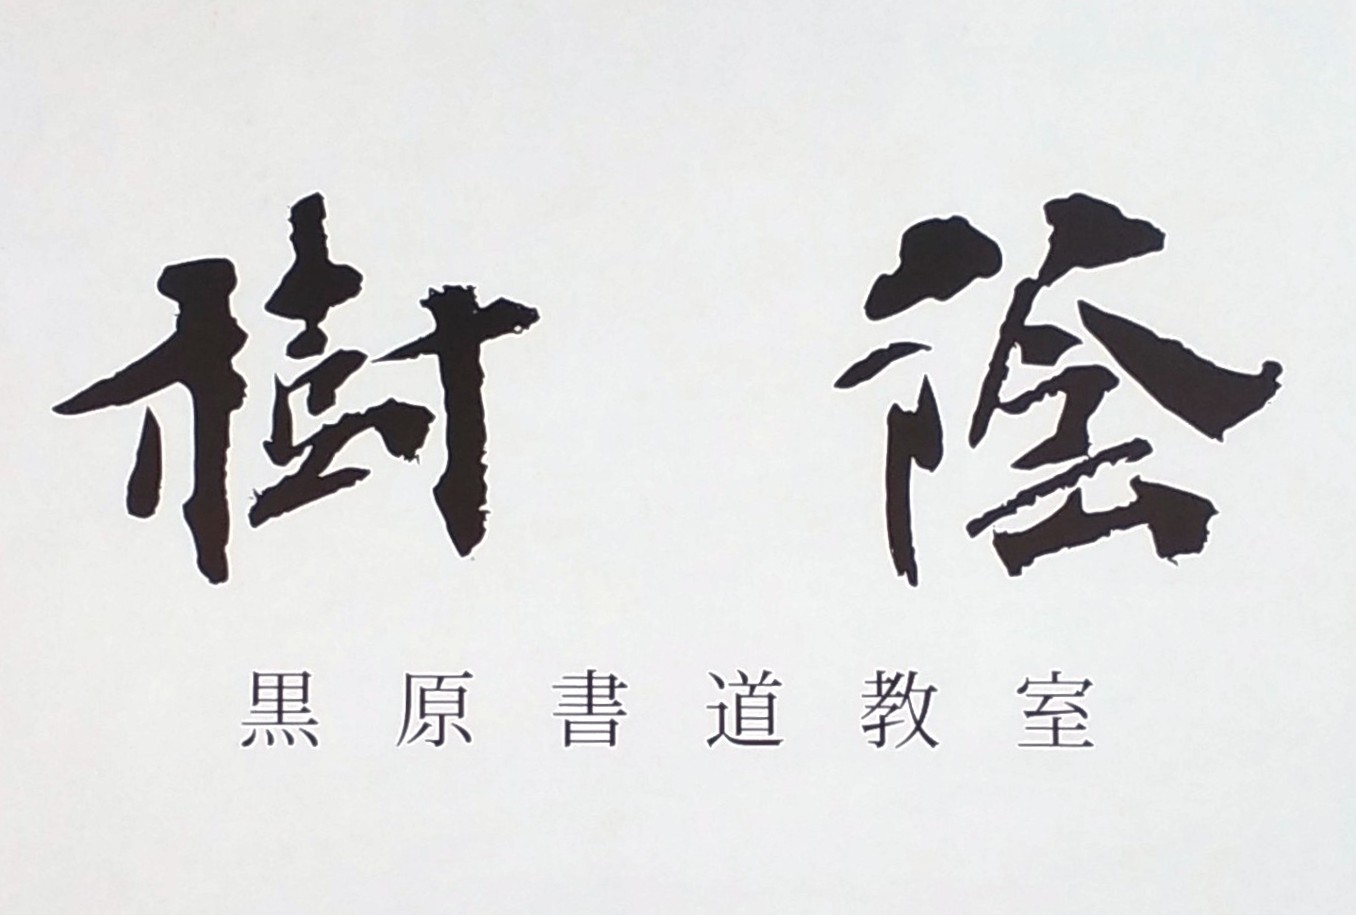 樹蔭
黒原書道教室